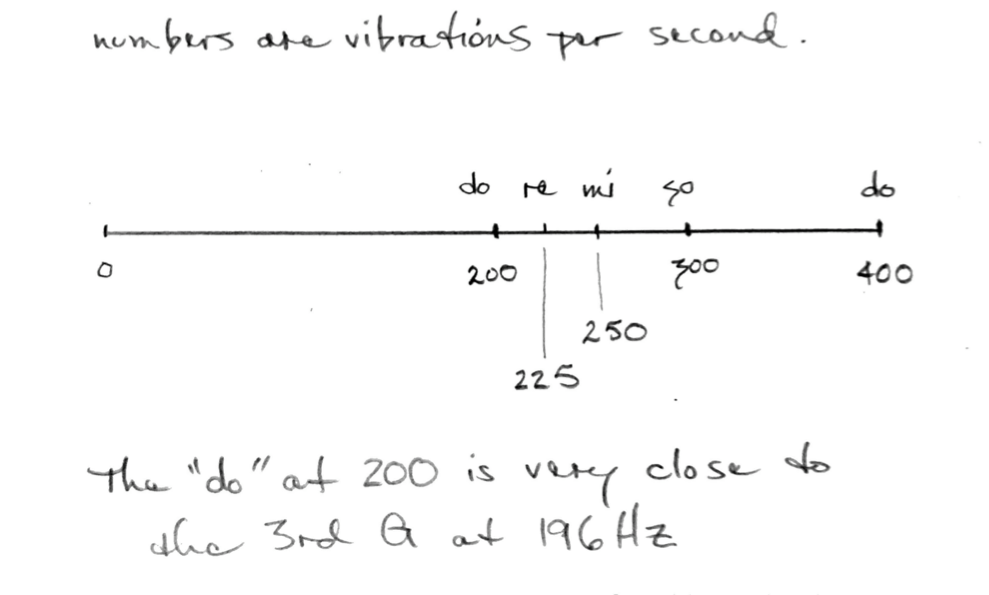 numbers are vibrations per second.
do re mi so do
0 200 300 400
250
225
The "do" at 200 is very close to
the 3rd G at 196 Hz